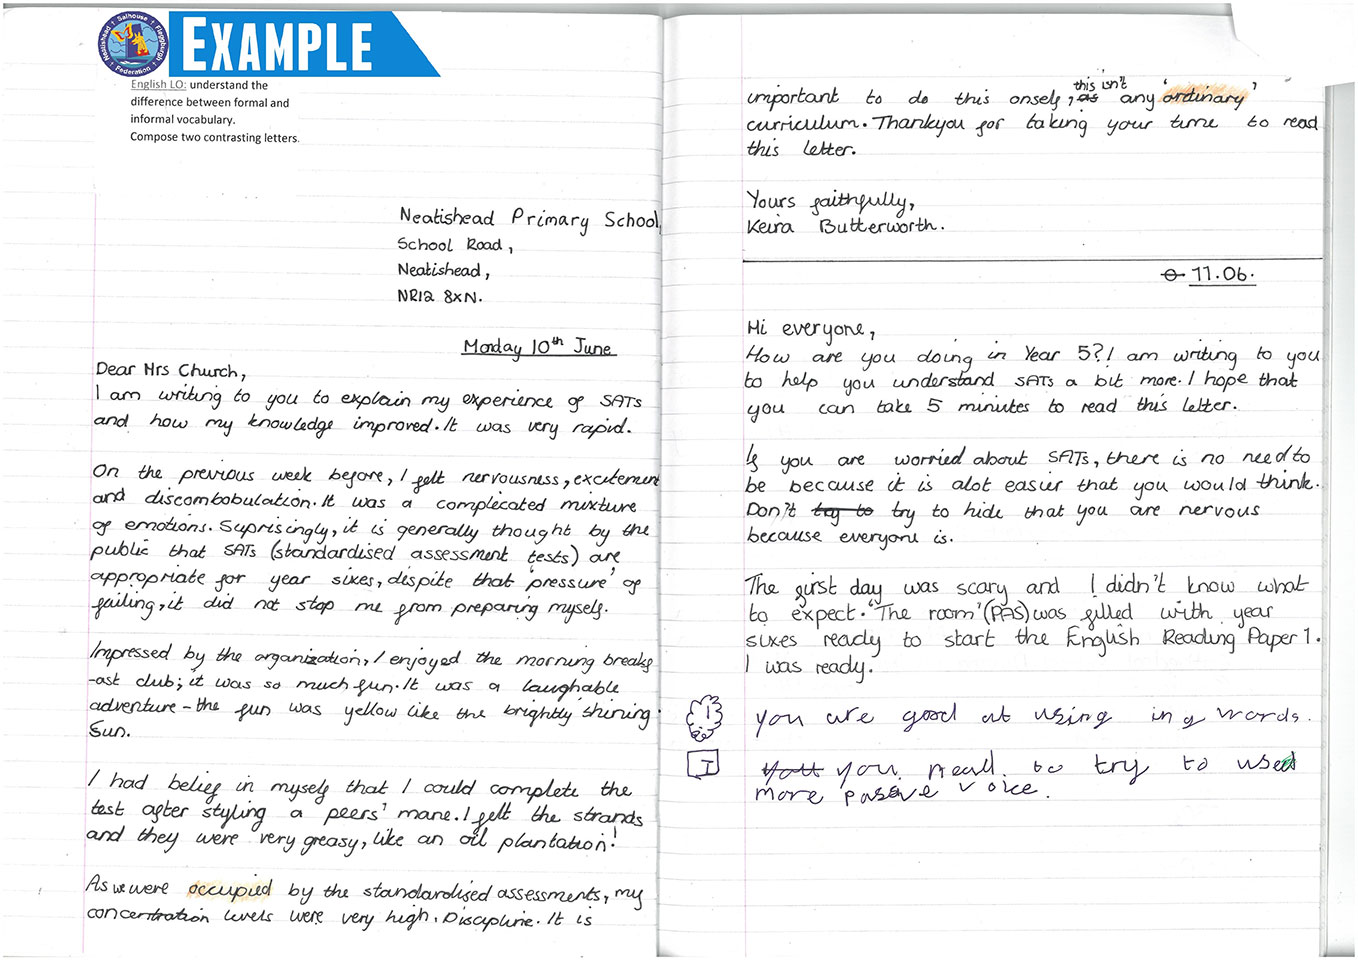 Neatishead Salhouse Fleggburgh
Federation
EXAMPLE
English LO: understand the
difference between formal and
informal vocabulary.
Compose two contrasting letters.
Neatishead Primary School,
School Road,
Neatishead,
NR12 8XN.
Monday 10th June
Dear Mrs Church,
I am writing to you to explain my experience of SATs
and how my knowledge improved. It was very rapid.
On the previous week before, I felt nervousness, excitement
and discombobulation. It was a complecated mixture
of emotions. Suprisingly, it is generally thought by the
public that SATs (standardised assessment tests) are
appropriate for year sixes, dispite that 'pressure' of
failing, it did not stop me from preparing myself.
Impressed by the organization, I enjoyed the morning breakf
-ast club; it was so much fun. It was a laughable
adventure - the fun was yellow like the brightly shining
Sun.
I had belief in myself that I could complete the
test after styling a peers' mane. I felt the strands
and they were very greasy, like an oil plantation!
As we were occupied by the standardised assessments, my
concentration levels were very high. Discipline. It is
important to do this onself, as this isn't any 'ordinary'
curriculum. Thankyou for taking your time to read
this letter.
Yours faithfully,
Keira Butterworth.
11.06.
Hi everyone,
How are you doing in Year 5?! am writing to you
to help you understand SATs a bit more. I hope that
you can take 5 minutes to read this letter.
If you are worried about SATs, there is no need to
be because it is alot easier that you would think.
Don't try to try to hide that you are nervous
because everyone is.
The first day was scary and I didn't know what
to expect. 'The room' (PAS) was filled with year
sixes ready to start the English Reading Paper 1.
I was ready.
you are good at using ing words.
I You you need to try to used
more passve voice.